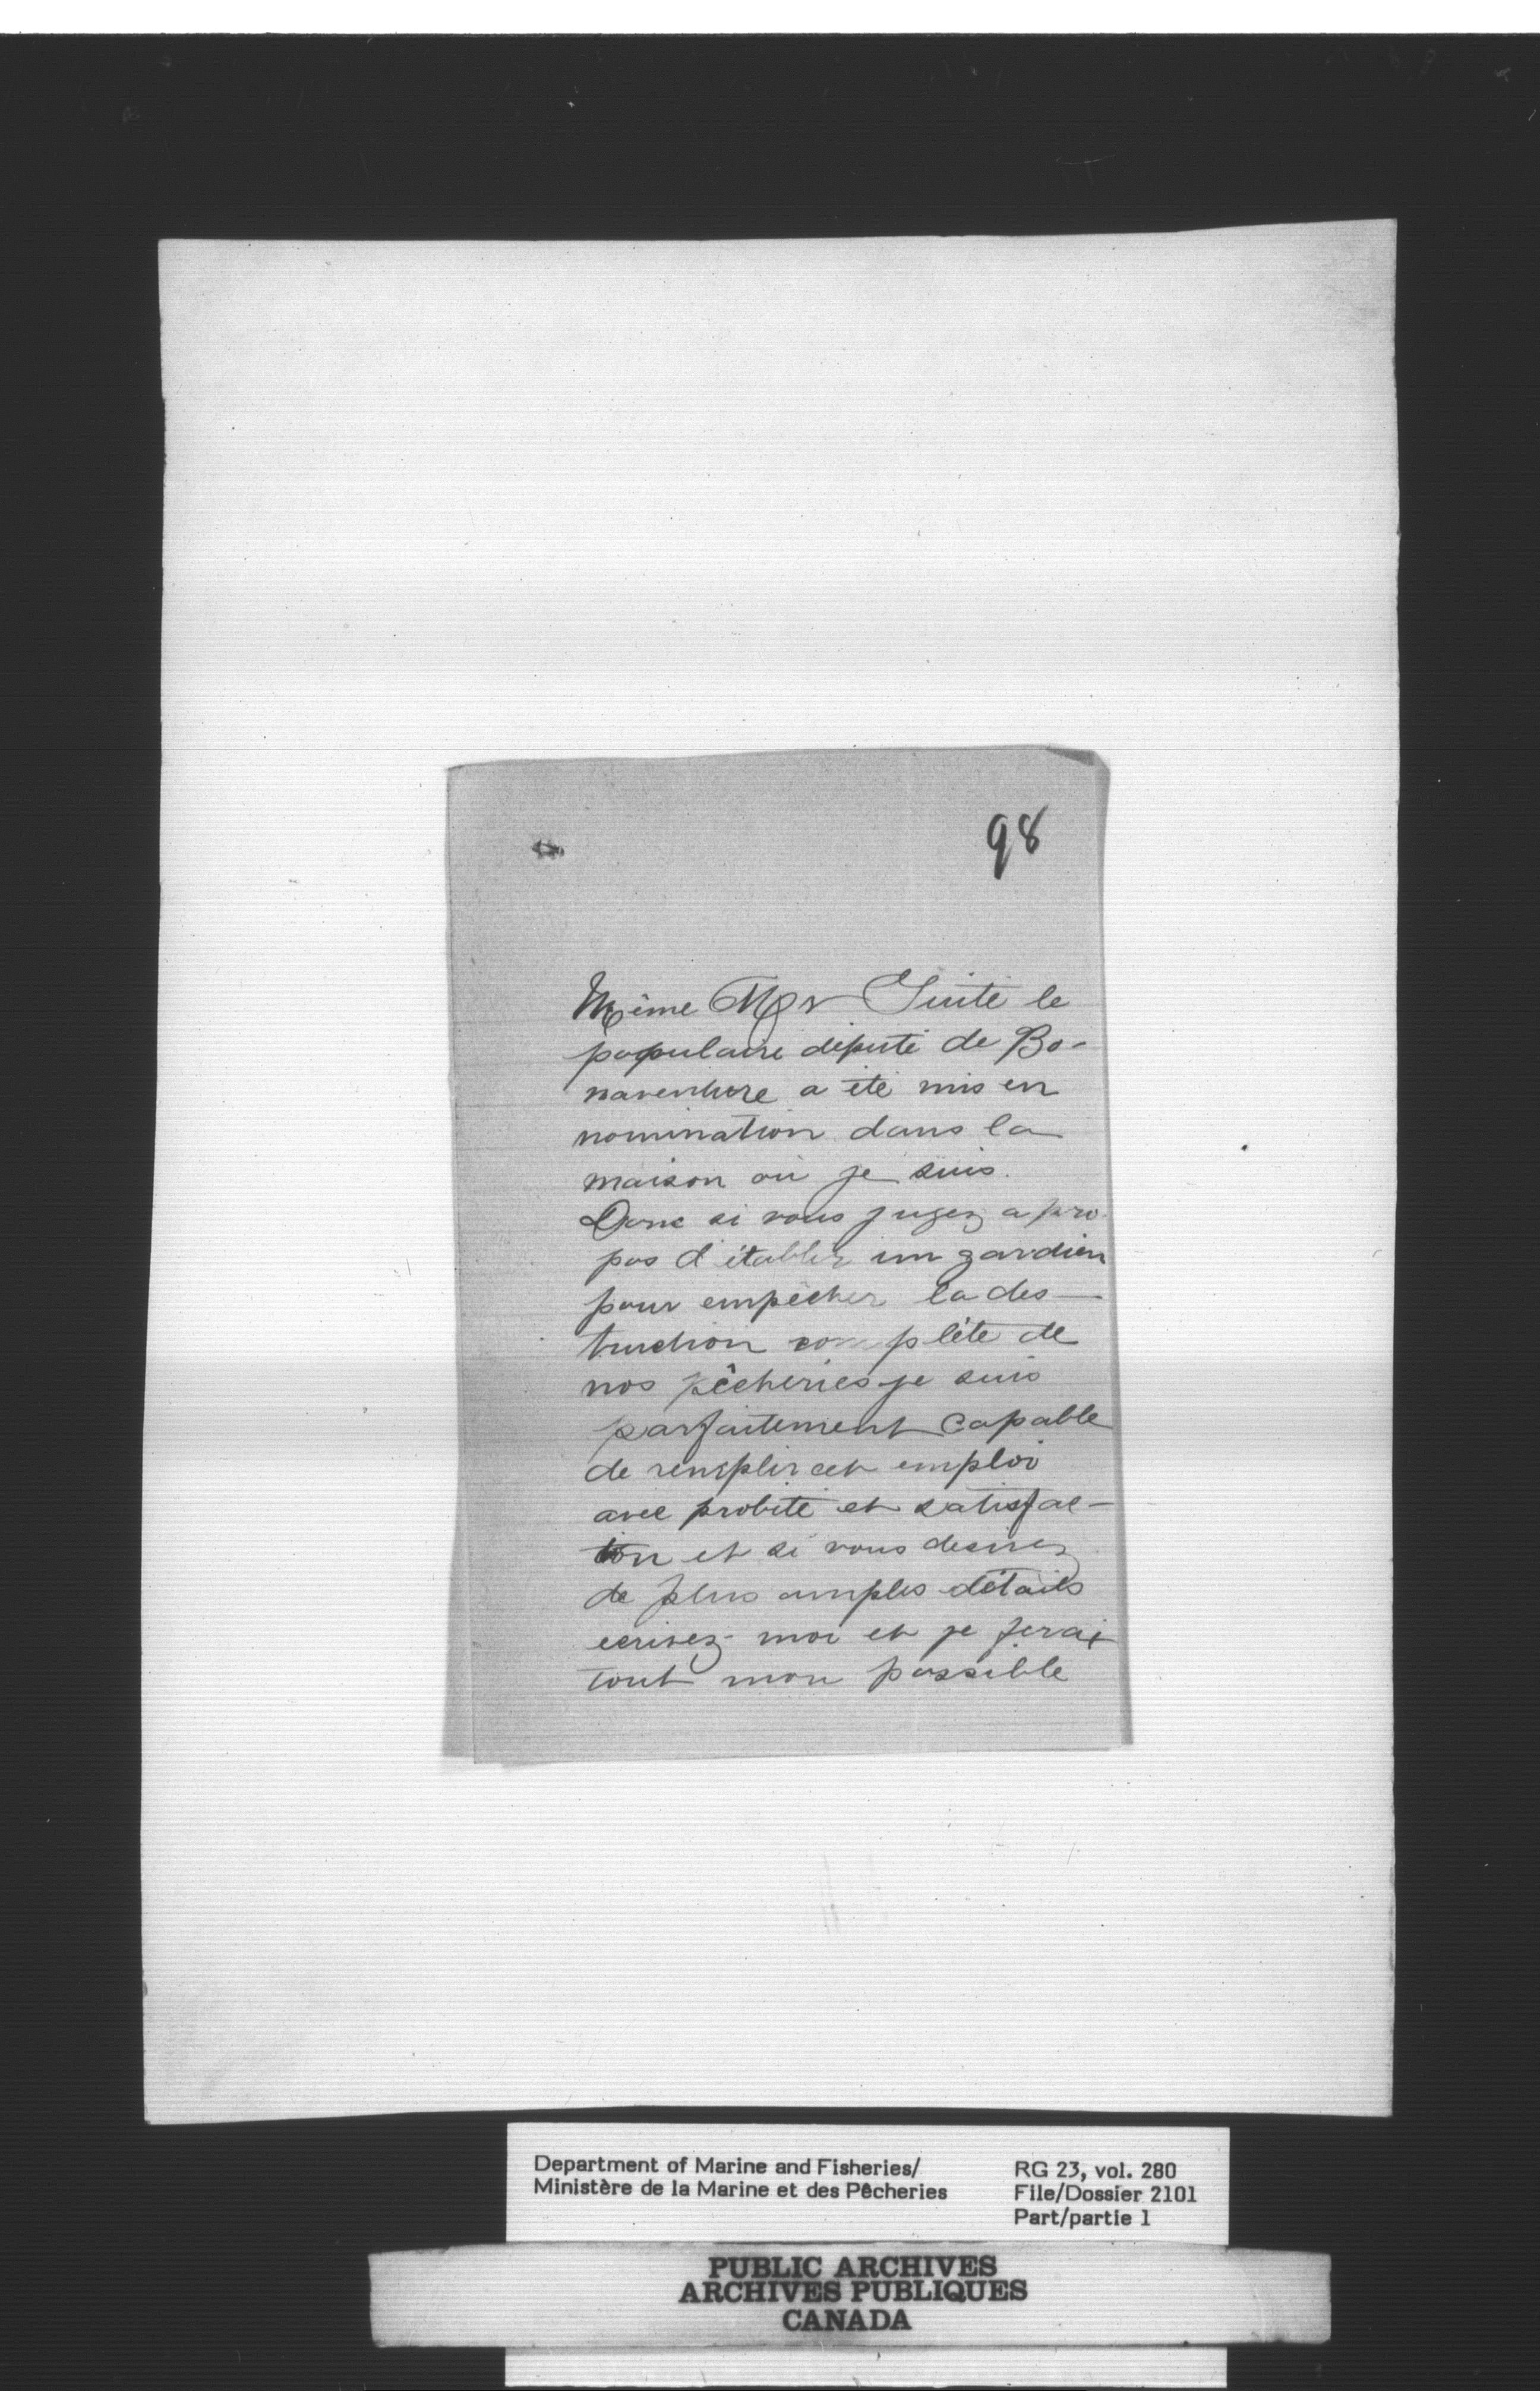 98
Même Mr Guité le
populaire député de Bo-
naventure a été mis en
nomination dans la
maison où je suis.
Donc si vous jugez a pro-
pos d'établir un gardien
pour empêcher la des-
truction complête de
nos pêcheries je suis
parfaitement capable
de remplir cet emploi
avec probité et satisfac-
tion et si vous desirez
de plus amples détails
ecrivez-moi et je ferai
tout mon possible
Department of Marine and Fisheries/
Ministère de la Marine et des Pêcheries
RG 23, vol. 280
File/Dossier 2101
Part/partie 1
PUBLIC ARCHIVES
ARCHIVES PUBLIQUES
CANADA